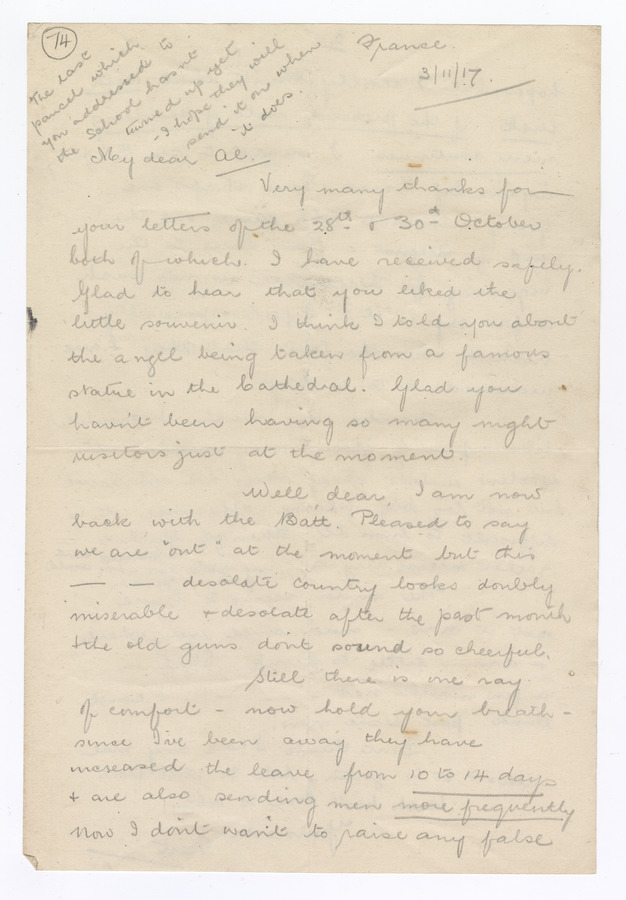 74
The last
parcel which
you addressed to
the School hasn't
turned up yet
- I hope they will
send it on when
it does.
France.
3/11/17.
My dear Al.
Very many thanks for
your letters of the 28th & 30th October
both of which I have received safely.
Glad to hear that you liked the
little souvenir. I think I told you about
the angel being taken from a famous
statue in the Cathedral. Glad you
havn't been having so many night
visitors just at the moment.
Well, dear, I am now
back with the Batt. Pleased to say
we are "out" at the moment but this
— — desolate country looks doubly
miserable & desolate after the past month
& the old guns don't sound so cheerful.
Still there is one ray
of comfort - now hold your breath -
since I've been away they have
increased the leave from 10 to 14 days
& are also sending men more frequently
Now I don't want to raise any false